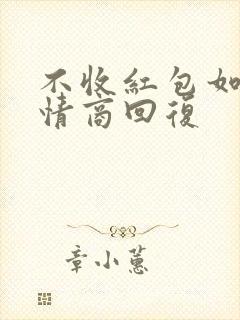 不收紅包如
情商回復
章小蕙